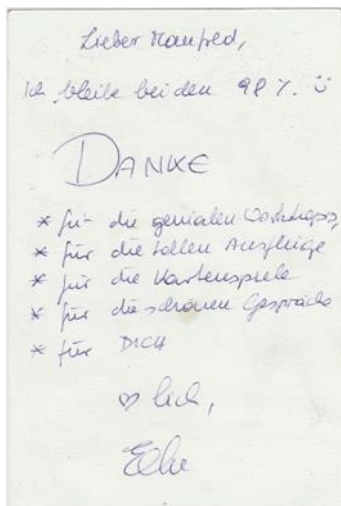 Lieber Manfred,
Ich bleibe bei den 98 %. ☺
DANKE
* für die genialen Workshops,
* für die tollen Ausflüge
* für die Kartenspiele
* für die schönen Gespräche
* für DICH
♡lich,
Elke